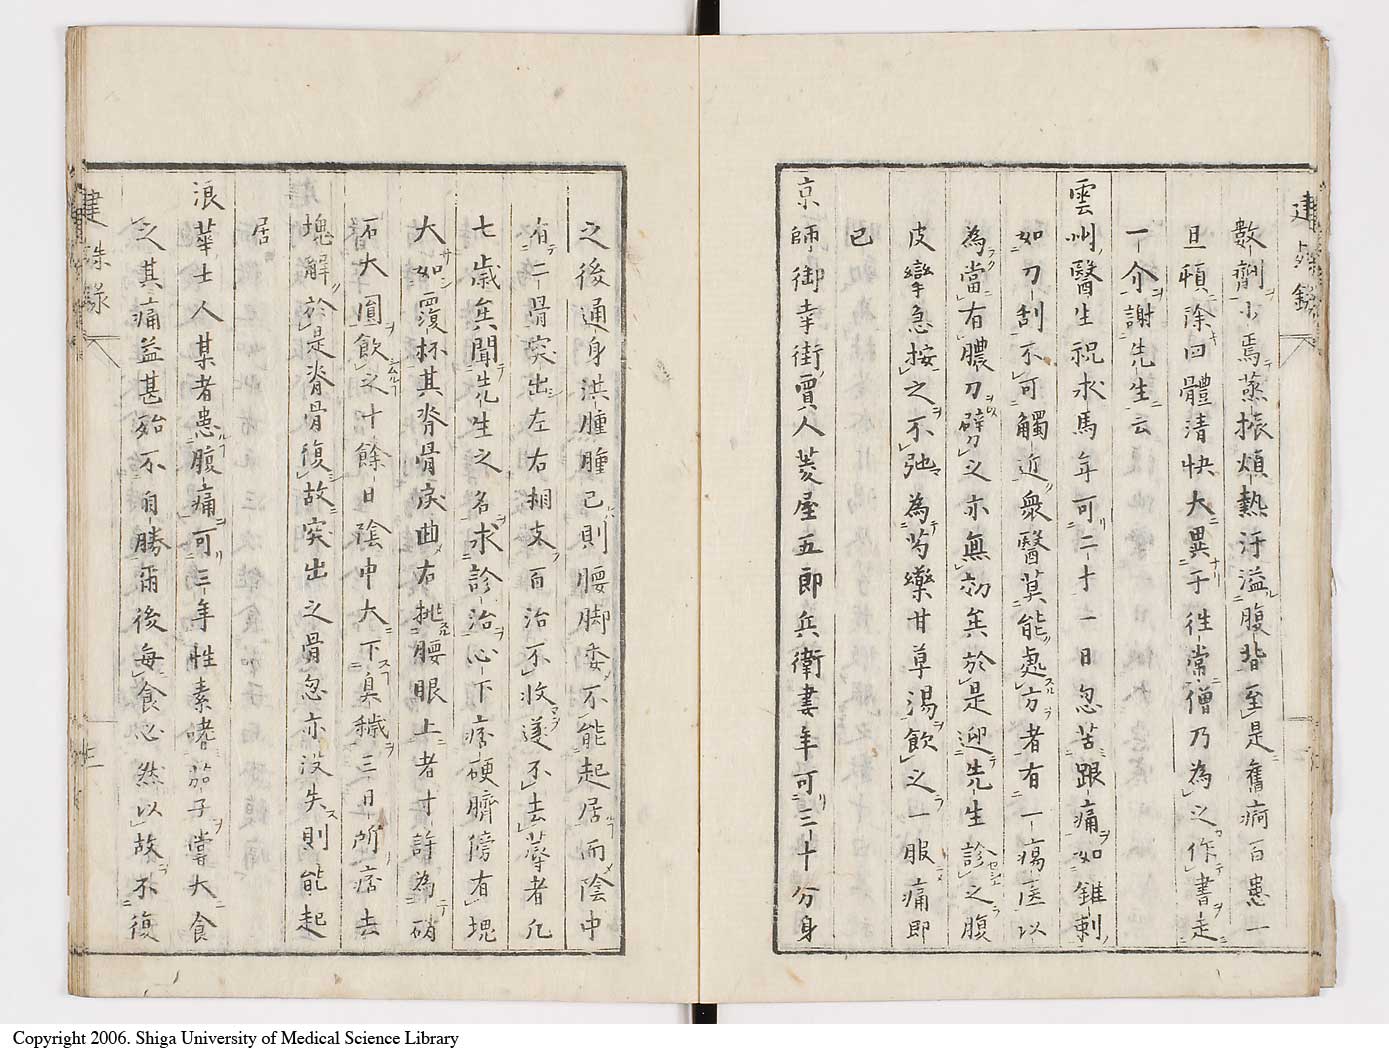 建殊録
數劑小焉蒸振煩熱汗溢腹背至是舊痾百患一
旦頓除四體清快大異于徃常僧乃為之作書走
一介謝先生云
雲州醫生祝求馬年可二十一日忽苦跟痛如錐刺
如刀刮不可觸近衆醫莫能處方者有一瘍医以
為當有膿刀劈之亦無効矣於是迎先生診之腹
皮攣急按之不弛為芍藥甘草湯飲之一服痛即
已
京師御幸街賈人菱屋五郎兵衛妻年可三十分身
之後通身洪腫腫已則腰脚委不能起居而陰中
有二骨突出左右相支百治不收遂不去蓐者凡
七歳矣聞先生之名求診治心下痞硬臍傍有塊
大如覆杯其脊骨戾曲右挑腰眼上者寸許為硝
石大圓飲之十餘日陰中大下臭穢三日所痞去
塊解於是脊骨復故突出之骨忽亦没失則能起
居
浪華士人某者患腹痛可三年性素嗜茄子嘗大食
之其痛益甚殆不自勝爾後毎食必然以故不復
建珠録